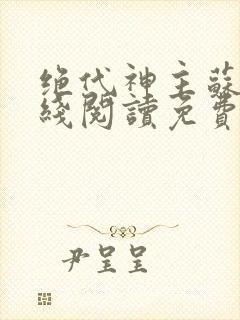 绝代神主蘇
綫閱讀免費
尹呈呈